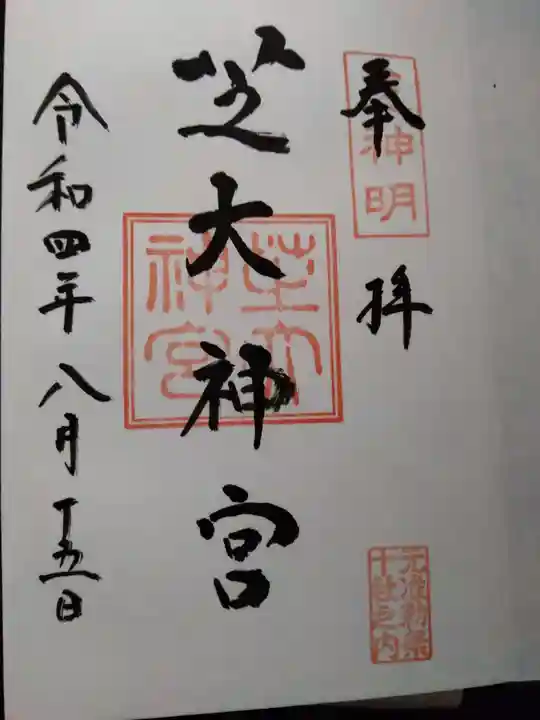 奉拝
神明
芝大神宮
芝大神宮
令和四年八月十五日
元准勅祭
十社之内